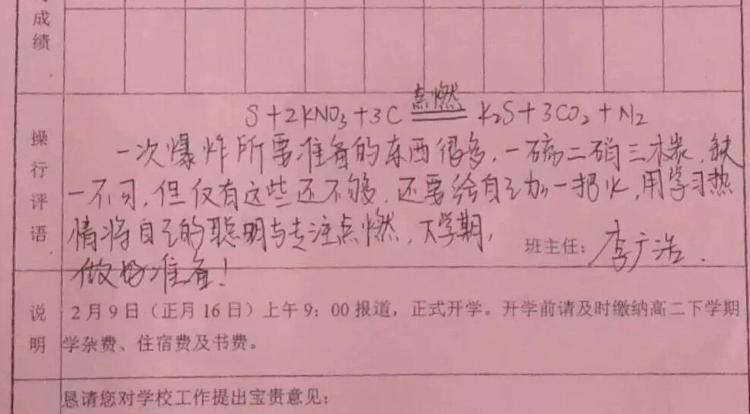 成
绩
S+2KNO₃+3C 点燃 K₂S+3CO₂+N₂
操行评语
一次爆炸所需准备的东西很多,一硫二硝三木炭,缺
一不可,但仅有这些还不够,还要给自己加一把火,用学习热
情将自己的聪明与专注点燃,下学期,
做好准备!
班主任:李广浩.
说明
2月9日(正月16日)上午9:00报道,正式开学。开学前请及时缴纳高二下学期
学杂费、住宿费及书费。
恳请您对学校工作提出宝贵意见: